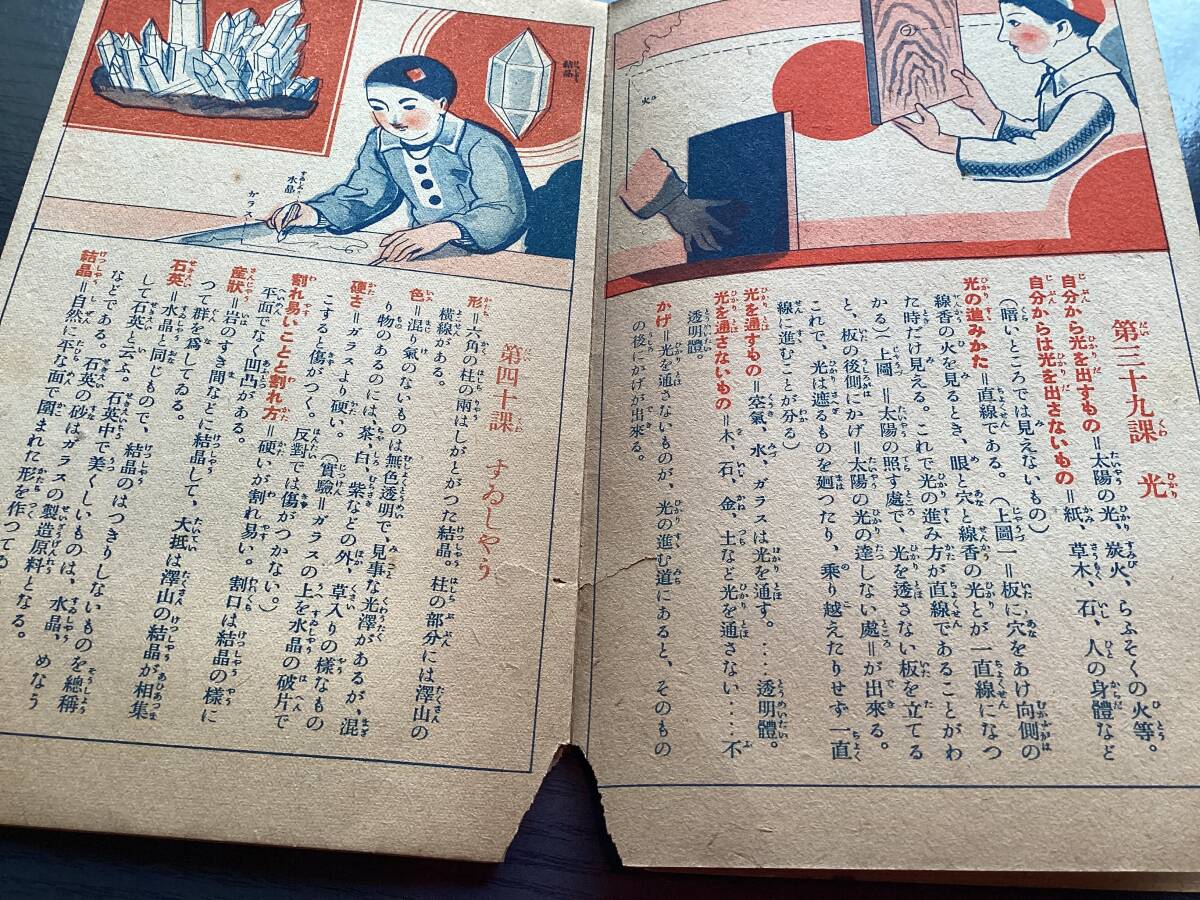 第三十九課 光
自分から光を出すもの＝太陽の光、炭火、らふそくの火等。
自分からは光を出さないもの＝紙、草木、石、人の身體など
（暗いところでは見えないもの）
光の進みかた＝直線である。（上圖一＝板に穴をあけ向側の
線香の火を見るとき、眼と穴と線香の光とが一直線になつ
た時だけ見える。これで光の進み方が直線であることがわ
かる）（上圖＝太陽の照す處で、光を透さない板を立てる
と、板の後側にかげ＝太陽の光の達しない處＝が出來る。
これで、光は遮るものを廻つたり、乗り越えたりせず一直
線に進むことが分る）
光を通すもの＝空氣、水、ガラスは光を通す。…透明體。
光を通さないもの＝木、石、金、土など光を通さない…不
透明體
かげ＝光を通さないものが、光の進む道にあると、そのもの
の後にかげが出來る。
火
結晶
水晶
ガラス
第四十課 すゐしやう
形＝六角の柱の兩はしがとがつた結晶。柱の部分には澤山の
横線がある。
色＝混り氣のないものは無色透明で、見事な光澤があるが、混
り物のあるのには、茶、白、紫などの外、草入りの樣なもの
硬さ＝ガラスより硬い。（實驗＝ガラスの上を水晶の破片で
こすると傷がつく。反對では傷がつかない。）
割れ易いことと割れ方＝硬いが割れ易い。割口は結晶の樣に
平面でなく凹凸がある。
産狀＝岩のすき間などに結晶して、大抵は澤山の結晶が相集
つて群を爲してゐる。
石英＝水晶と同じもので、結晶のはつきりしないものを總稱
して石英と云ふ。石英中で美くしいものは、水晶、めなう
などである。石英の砂はガラスの製造原料となる。
結晶＝自然に平な面で圍まれた形を作つてゐ